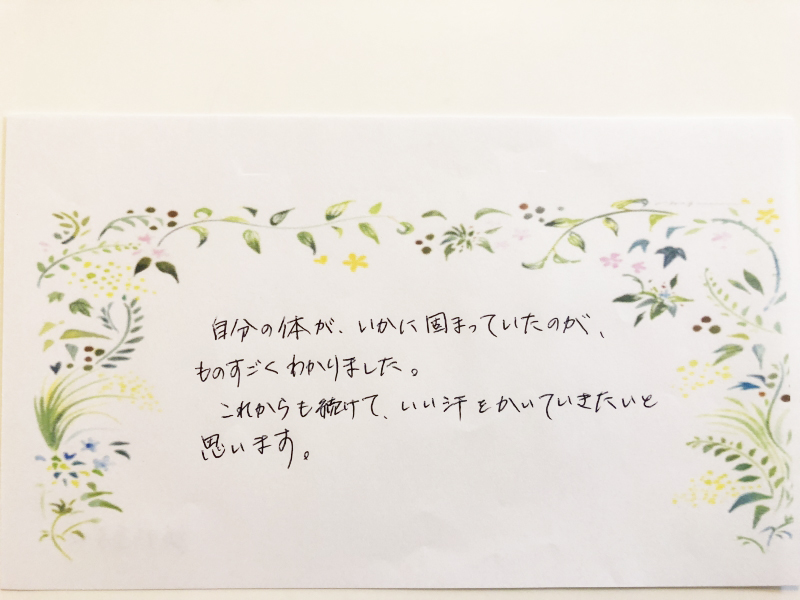 自分の体が、いかに固まっていたのが、
ものすごくわかりました。
これからも続けて、いい汗をかいていきたいと
思います。